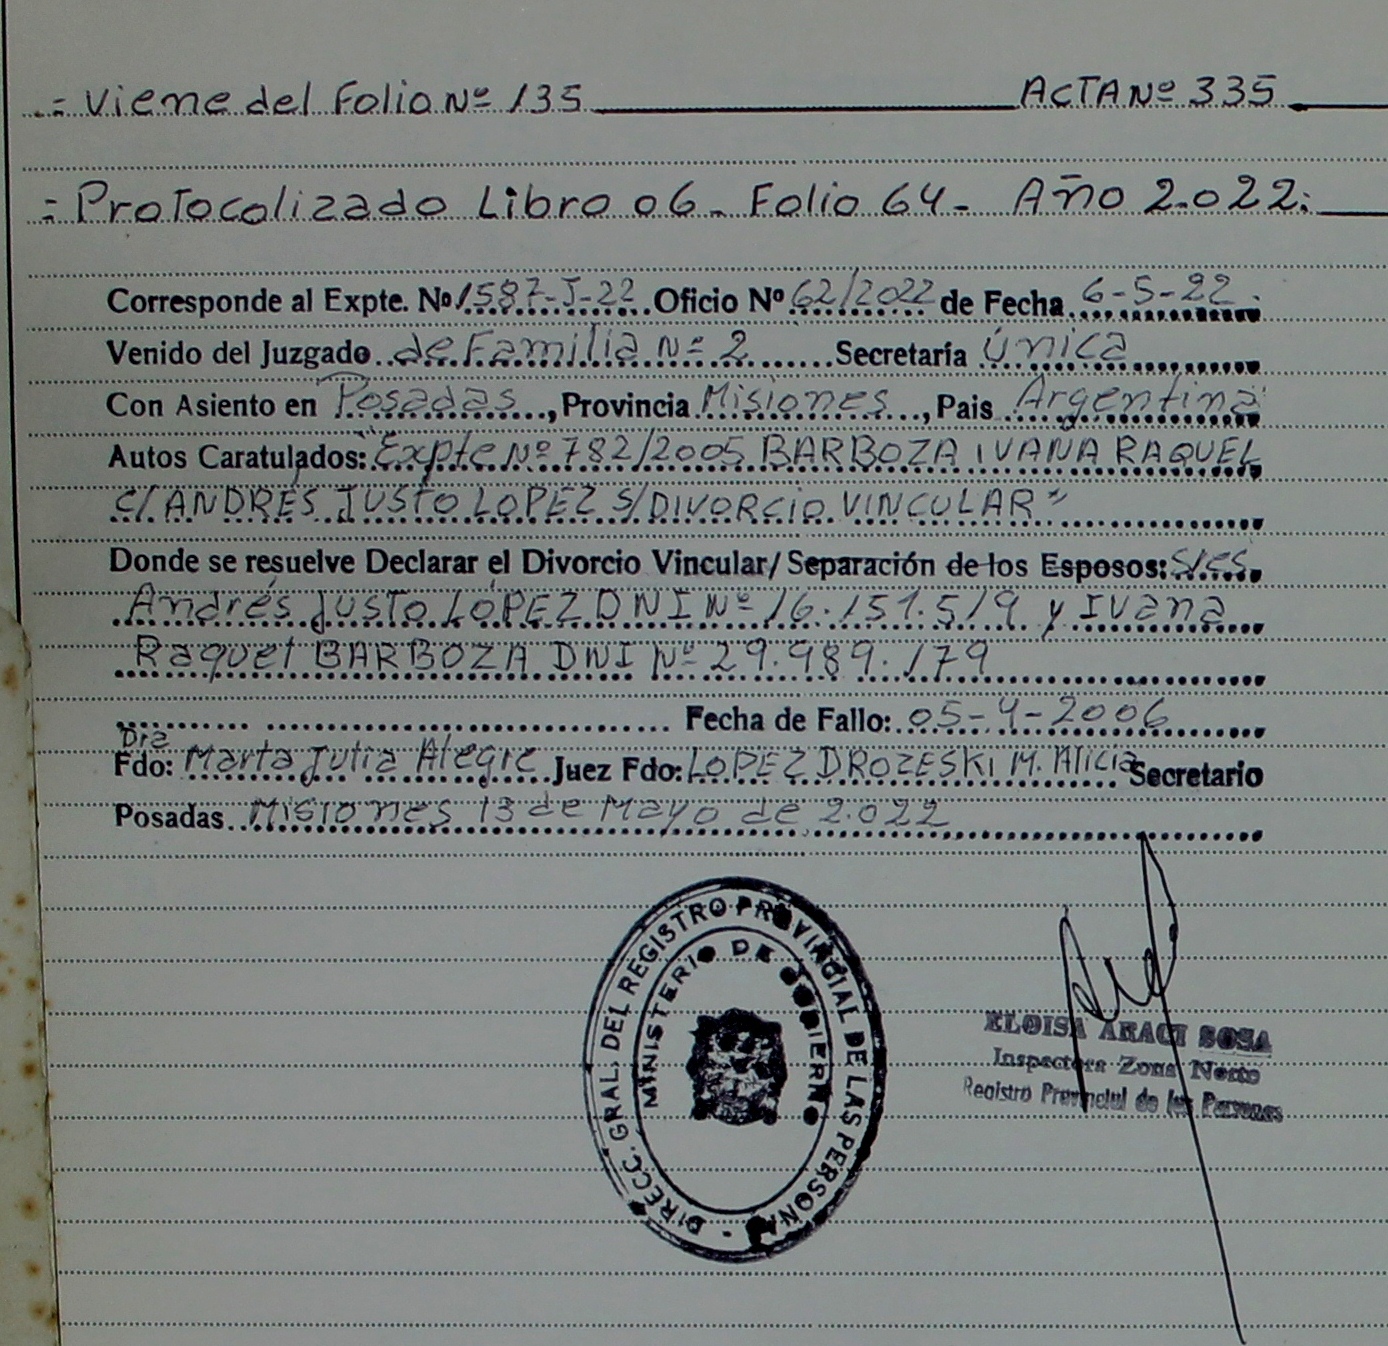 .= Viene del Folio Nº 135 ACTA Nº 335
= Protocolizado Libro 06 - Folio 64 - Año 2.022:
Corresponde al Expte. Nº 1587-J-22 Oficio Nº 62/2022 de Fecha 6-5-22.
Venido del Juzgado de Familia Nº 2 Secretaría Única
Con Asiento en Posadas, Provincia Misiones, Pais Argentina
Autos Caratulados: "Expte Nº 782/2005 BARBOZA IVANA RAQUEL
C/ ANDRÉS JUSTO LOPEZ S/DIVORCIO VINCULAR"
Donde se resuelve Declarar el Divorcio Vincular/ Separación de los Esposos: S/es
Andrés Justo LÓPEZ DNI Nº 16.151.519 y Ivana
Raquel BARBOZA DNI Nº 29.989.179
Fecha de Fallo: 05-4-2006
Dra
Fdo: Marta Julia Alegre Juez Fdo: LOPEZ DROZESKI M. Alicia Secretario
Posadas Misiones 13 de Mayo de 2.022
DIRECC. GRAL. DEL REGISTRO PROVINCIAL DE LAS PERSONAS
MINISTERIO DE GOBIERNO
ELOISA ARACI SOSA
Inspectora Zona Norte
Registro Provincial de las Personas